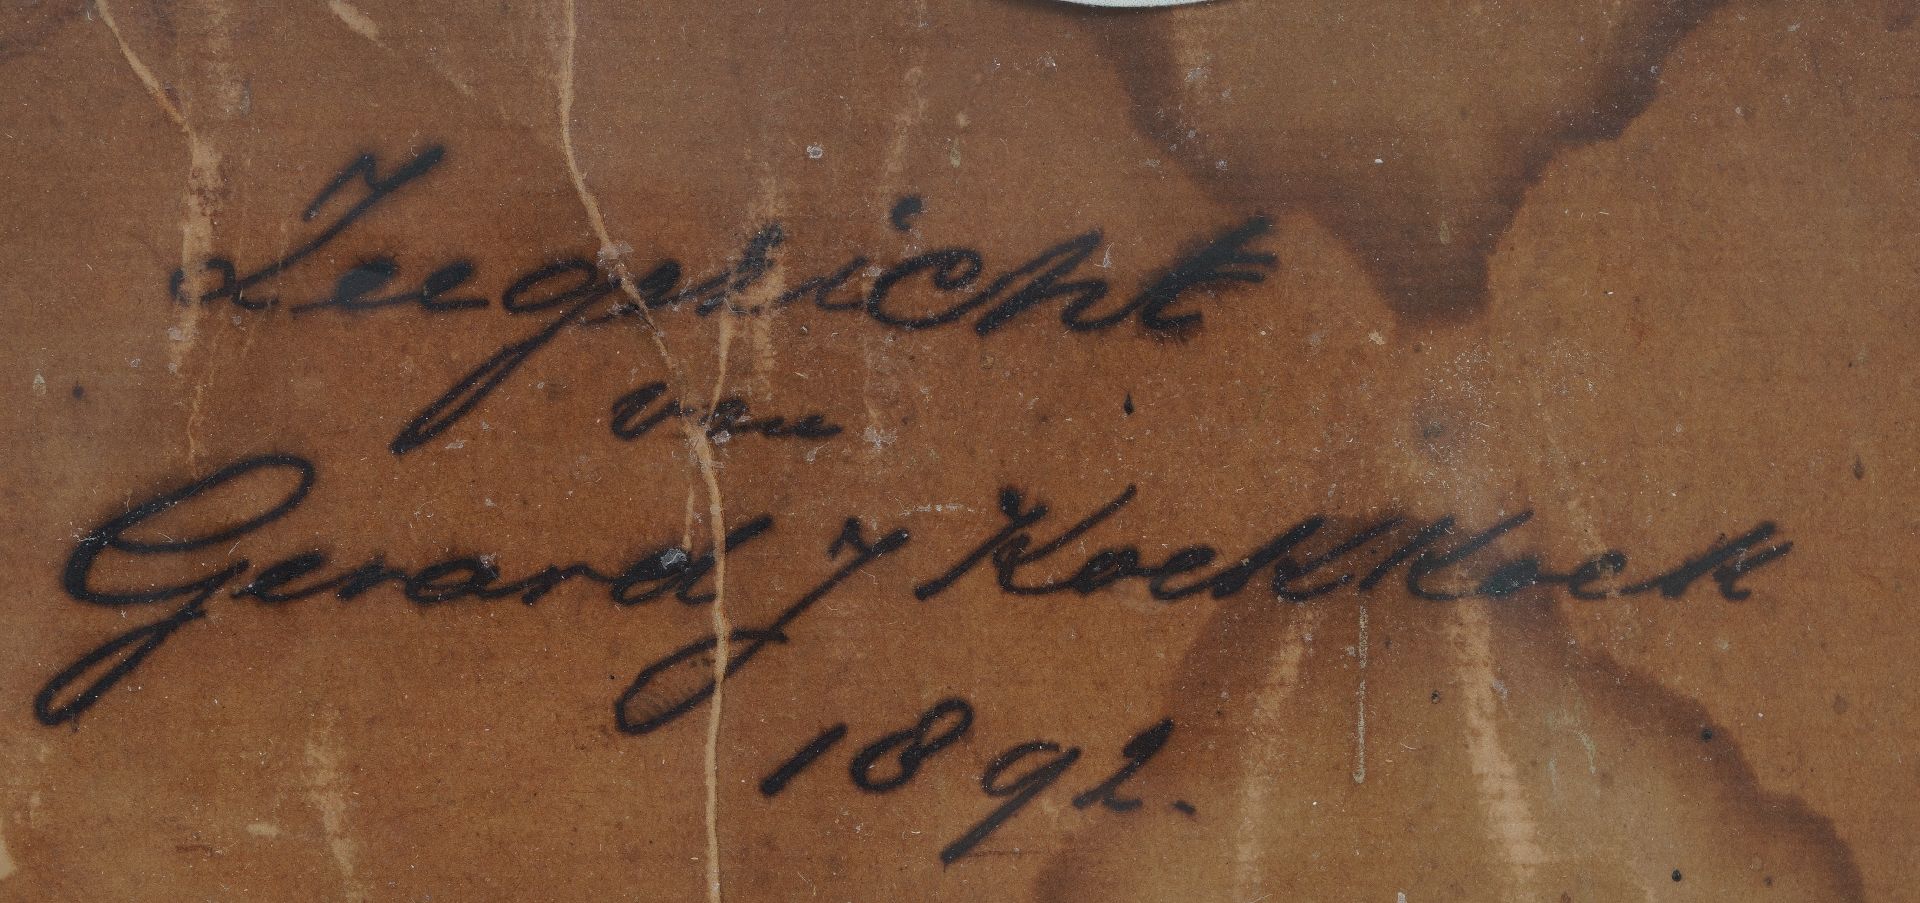 Zeegesicht
van
Gerard J Koekkoek
1892.